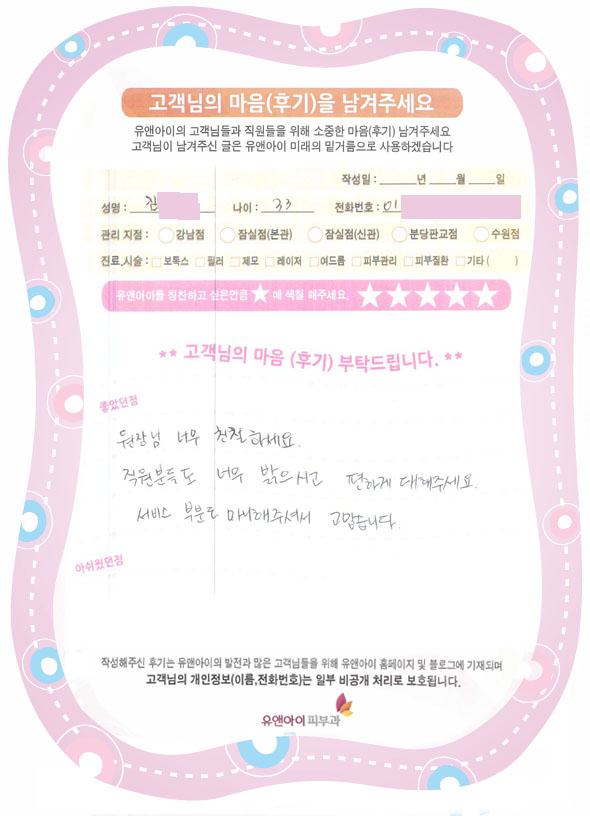 고객님의 마음(후기)을 남겨주세요
유앤아이의 고객님들과 직원들을 위해 소중한 마음(후기) 남겨주세요
고객님이 남겨주신 글은 유앤아이 미래의 밑거름으로 사용하겠습니다
작성일 : ____년 ____월 ____일
성명 : 김 나이 : 33 전화번호 : 01
관리 지점 : 강남점 잠실점(본관) 잠실점(신관) 분당판교점 수원점
진료,시술 : 보톡스 필러 제모 레이저 여드름 피부관리 피부질환 기타 ( )
유앤아이를 칭찬하고 싶은만큼 ★ 에 색칠 해주세요. ★★★★★
** 고객님의 마음 (후기) 부탁드립니다. **
좋았던점
원장님 너무 친절하세요.
직원분들도 너무 밝으시고 편하게 대해주세요.
서비스 부분도 마니해주셔서 고맙습니다.
아쉬웠던점
작성해주신 후기는 유앤아이의 발전과 많은 고객님들을 위해 유앤아이 홈페이지 및 블로그에 기재되며
고객님의 개인정보(이름,전화번호)는 일부 비공개 처리로 보호됩니다.
유앤아이피부과